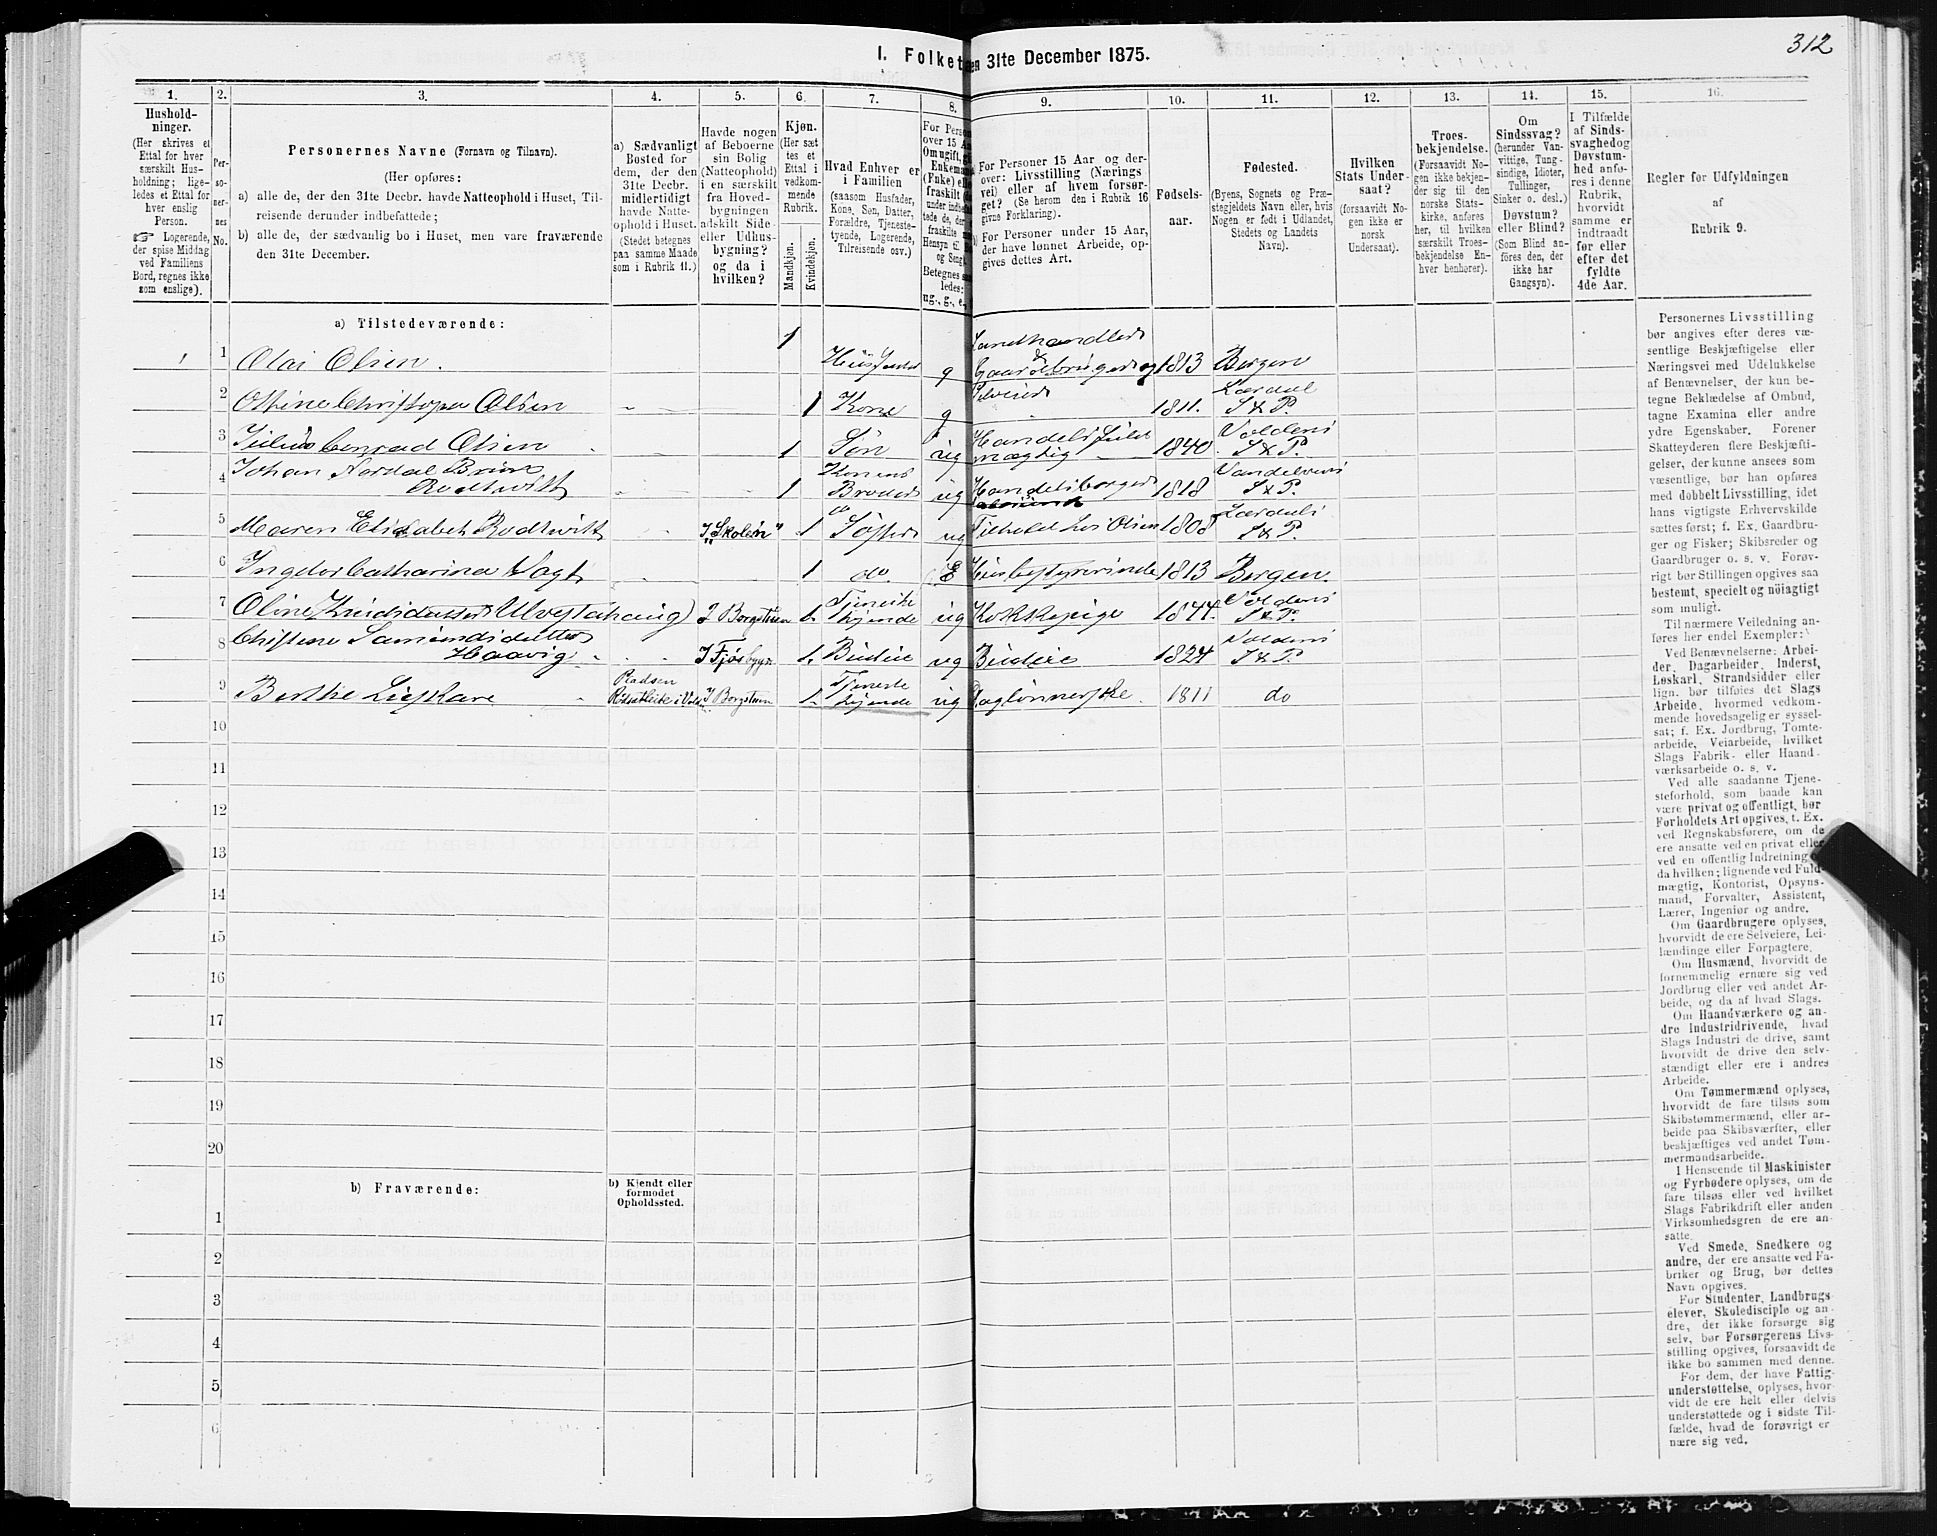 312
I. Folket
en 31te December 1875.
1.
2.
3.
4.
5.
6.
7.
8.
9.
10.
11.
12.
13.
14.
15.
16.
Hushold-
ninger.
(Her skrives et
Ettal for hver
særskilt Hus-
holdning; lige-
ledes et Ettal for
hver enslig
Person.
☞ Logerende,
der spise Middag
ved Familiens
Bord, regnes ikke
som enslige).
Per-
so-
ner-
nes
No.
Personernes Navne (Fornavn og Tilnavn).
(Her opføres:
a) alle de, der den 31te Decbr. havde Natteophold i Huset, Til-
reisende derunder indbefattede;
b) alle de, der sædvanlig bo i Huset, men vare fraværende
den 31te December.
a) Sædvanligt
Bosted for
dem, der den
31te Decbr.
midlertidigt
havde Natte-
ophold i Huset.
(Stedet betegnes
paa samme Maade
som i Rubrik 11.)
Havde nogen
af Beboerne
sin Bolig
(Natteophold)
i en særskilt
fra Hoved-
bygningen
adskilt Side-
eller Udhus-
bygning?
og da i
hvilken?
Kjøn.
(Her sæt
tes et
Ettal i
vedkom-
mende
Rubrik.
Mandkjøn.
Kvindekjøn.
Hvad Enhver er
i Familien
(saasom Husfader,
Kone, Søn, Datter,
Forældre, Tjeneste-
tyende, Logerende,
Tilreisende osv.)
For Person
over 15 Aa
Om ugift, gi
Enkemand
(Enke) elle
fraskilt
under indbe
tede de, der
fraskilte m
Hensyn til
og Seng
Betegnes s
ledes:
ug., g., e.,
For Personer 15 Aar og der-
over: Livsstilling (Nærings
vei) eller af hvem forsør-
get? (Se herom den i Rubrik 16
givne Forklaring).
For Personer under 15 Aar,
der have lønnet Arbeide, op-
gives dettes Art.
Fødsels-
aar.
Fødested.
(Byens, Sognets og Præ-
stegjeldets Navn eller, hvis
Nogen er født i Udlandet,
Stedets og Landets
Navn).
Hvilken
Stats Under-
saat?
(forsaavidt No-
gen ikke er
norsk
Undersaat).
Troes-
bekjendelse.
(Forsaavidt No-
gen ikke bekjen-
der sig til den
norske Stats-
kirke, anføres
her, til hvilken
særskilt Troes-
bekjendelse En-
hver henhører).
Om
Sindssvag?
(herunder Van-
vittige, Tung-
sindige, Idioter,
Tullinger,
Sinker o. desl.)
Døvstum?
eller Blind?
(Som Blind an-
føres den, der
ikke har
Gangsyn).
I Tilfælde
af Sinds-
svaghed og
Døvstum-
hed anfø-
res i denne
Rubrik,
hvorvidt
samme er
indtraadt
før eller
efter det
fyldte
4de Aar.
Regler for Udfyldningen
af
Rubrik 9.
a) Tilstedeværende:
1 1 Olai Olsen. 1 Huusfader g Landhandler & Gaardbruger og Selveier 1813 Bergen
2 Oline Christopa Olsen 1 Kone g 1811. Lærdal S & P.
3 Julius Conrad Olsen 1 Søn ug Handelsfuld mægtig 1840. Voldens S & P.
4 Johan Nordal Brun Rodtwitt 1 Konens Broder ug Handelsborger 1818 Vandelvens S & P.
5 Maren Elisabet Rodtwitt I "Skolen" 1 do Søster ug Tilhold hos Olsen 1808 Lærdals S & P.
6 Ingebor Catharina Vogt 1 do. E Huusbestyrerinde 1813 Bergen.
7 Oline Knudsdatter Ulvestahaug) I Borgstuen 1. Tjeneste tyende ug Kokkepige 1844. Voldens S & P.
8 Christine Samundsdatter Haavig I Fjøs bygn 1. Budeie ug Budeie 1824 Voldens S & P.
9 Berthe Liaskare Pladsen i Volden I Borgstuen 1. Tjeneste tyende ug Daglønnerske. 1811 do
10
11
12
13
14
15
16
17
18
19
20
b) Fraværende:
b) Kjendt eller
formodet
Opholdssted.
1
2
3
4
5
6
Personernes Livsstilling
bør angives efter deres væ-
sentlige Beskjæftigelse eller
Næringsvei med Udelukkelse
af Benævnelser, der kun be-
tegne Beklædelse af Ombud,
tagne Examina eller andre
ydre Egenskaber. Forener
Skatteyderen flere Beskjæfti-
gelser, der kunne ansees som
væsentlige, bør han opføres
med dobbelt Livsstilling, idet
hans vigtigste Erhvervskilde
sættes først; f. Ex. Gaardbru-
ger og Fisker; Skibsreder og
Gaardbruger o. s. v. Forøv-
rigt bør Stillingen opgives saa
bestemt, specielt og nøiagtigt
som muligt.
Til nærmere Veiledning an-
føres her endel Exempler:
Ved Benævnelserne: Arbei-
der, Dagarbeider, Inderst,
Løskarl, Strandsidder eller
lign. bør tilføies det Slags
Arbeide, hvormed vedkom-
mende hovedsagelig er syssel-
sat; f. Ex. Jordbrug, Tomte-
arbeide, Veiarbeide, hvilket
Slags Fabrik- eller Haand-
værksarbeide o. s. v.
Ved alle saadanne Tjene-
steforhold, som baade kan
være privat og offentligt, bør
Forholdets Art opgives, t. Ex.
ved Regnskabsførere, om de
ere ansatte ved en privat eller
ved en offentlig Indretning og
da hvilken; lignende ved Fuld-
mægtig, Kontorist, Opsyns-
mand, Forvalter, Assistent,
Lærer, Ingeniør og andre.
Om Gaardbrugere oplyses,
hvorvidt de ere Selveiere, Lei-
lændinge eller Forpagtere.
Om Husmænd, hvorvidt de
fornemmelig ernære sig ved
Jordbrug eller ved andet Ar-
beide, og da af hvad Slags.
Om Haandværkere og an-
dre Industridrivende, hvad
Slags Industri de drive, samt
hvorvidt de drive den selv-
stændigt eller ere i andres
Arbeide.
Om Tømmermænd oplyses,
hvorvidt de fare tilsøs som
Skibstømmermænd, eller ar-
beide paa Skibsværfter, eller
beskjæftiges ved andet Tøm-
mermandsarbeide.
I Henseende til Maskinister
og Fyrbødere oplyses, om de
fare tilsøs eller ved hvilket
Slags Fabrikdrift eller anden
Virksomhedsgren de ere an-
satte.
Ved Smede, Snedkere og
andre, der ere ansatte ved Fa-
briker og Brug, bør dettes
Navn opgives.
For Studenter, Landbrugs-
elever, Skoledisciple og an-
dre, der ikke forsørge sig
selv, bør Forsørgerens Livs-
stilling opgives, forsaavidt de
ikke bo sammen med denne.
For dem, der have Fattig-
understøttelse, oplyses, hvor-
vidt de ere helt eller delvis
understøttede og i sidste Til-
fælde, hvad de forøvrigt er
nære sig ved.